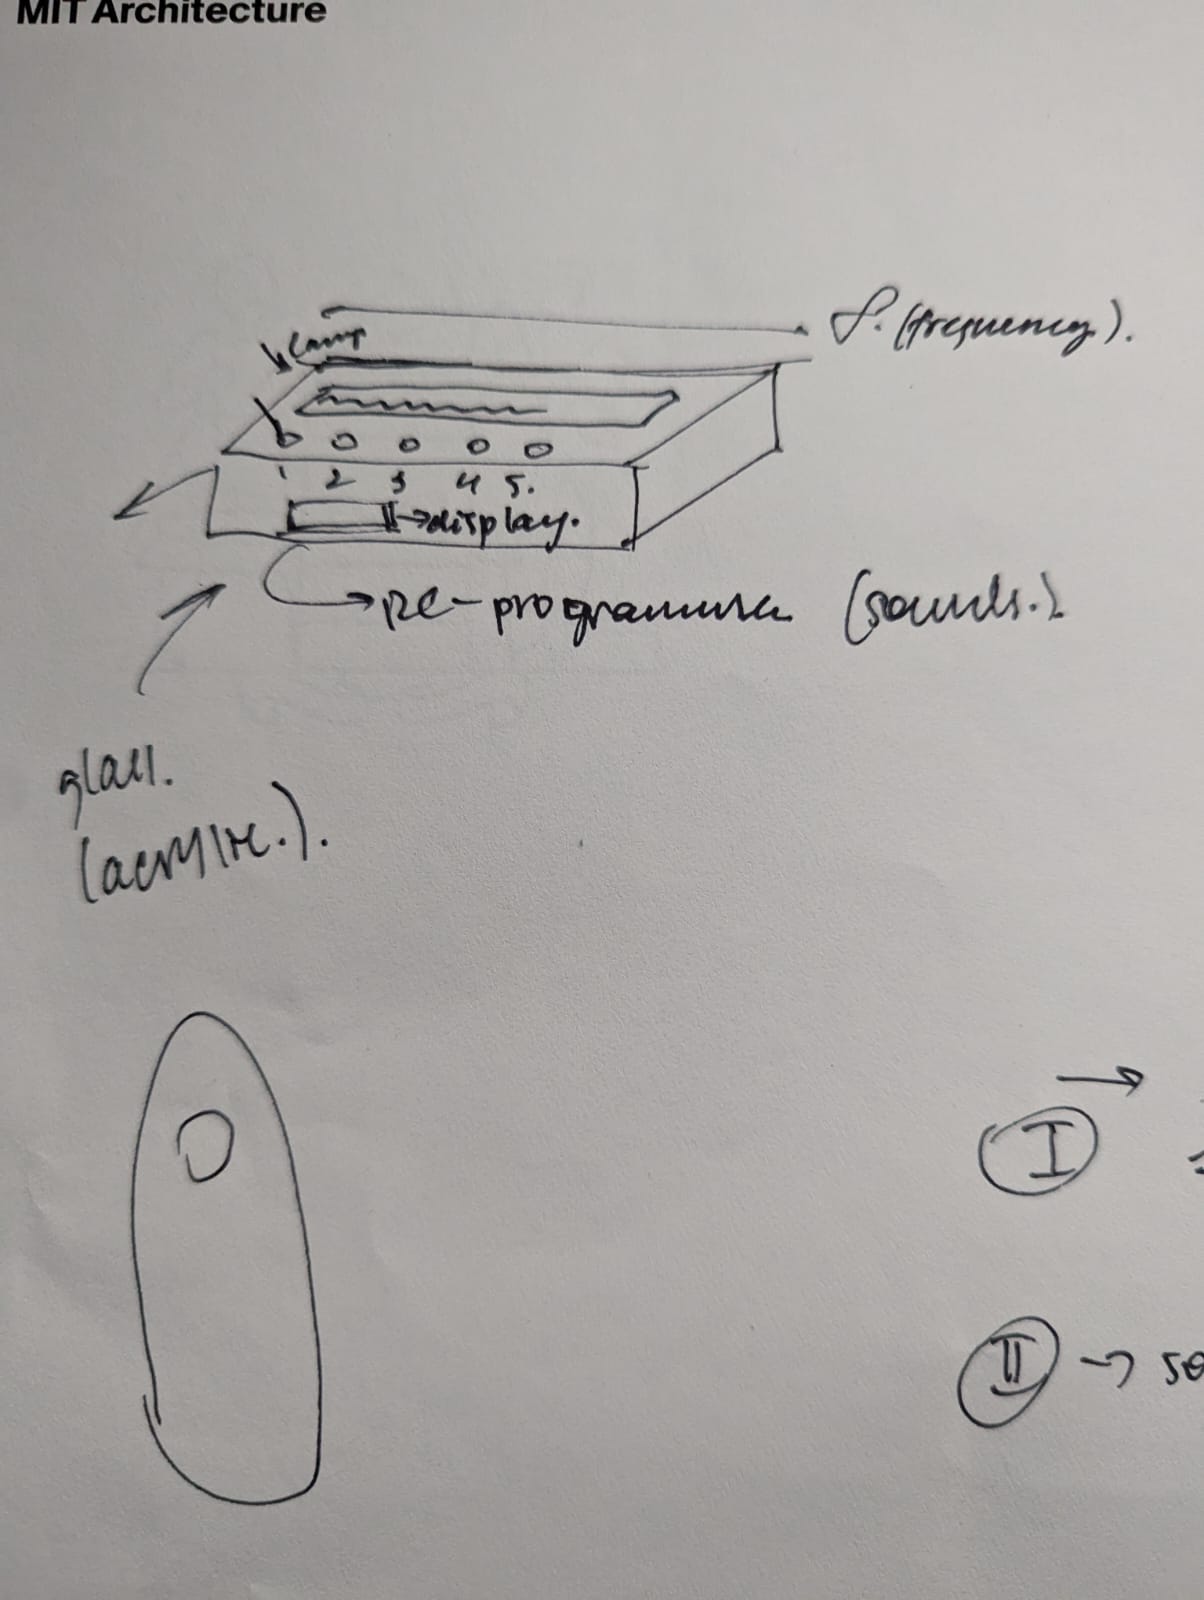 MIT Architecture
f. (frequency).
Lamp
1 2 3 4 5.
→display.
→ re-programme (sounds.)
glass.
(acrylic.).
I
II → so